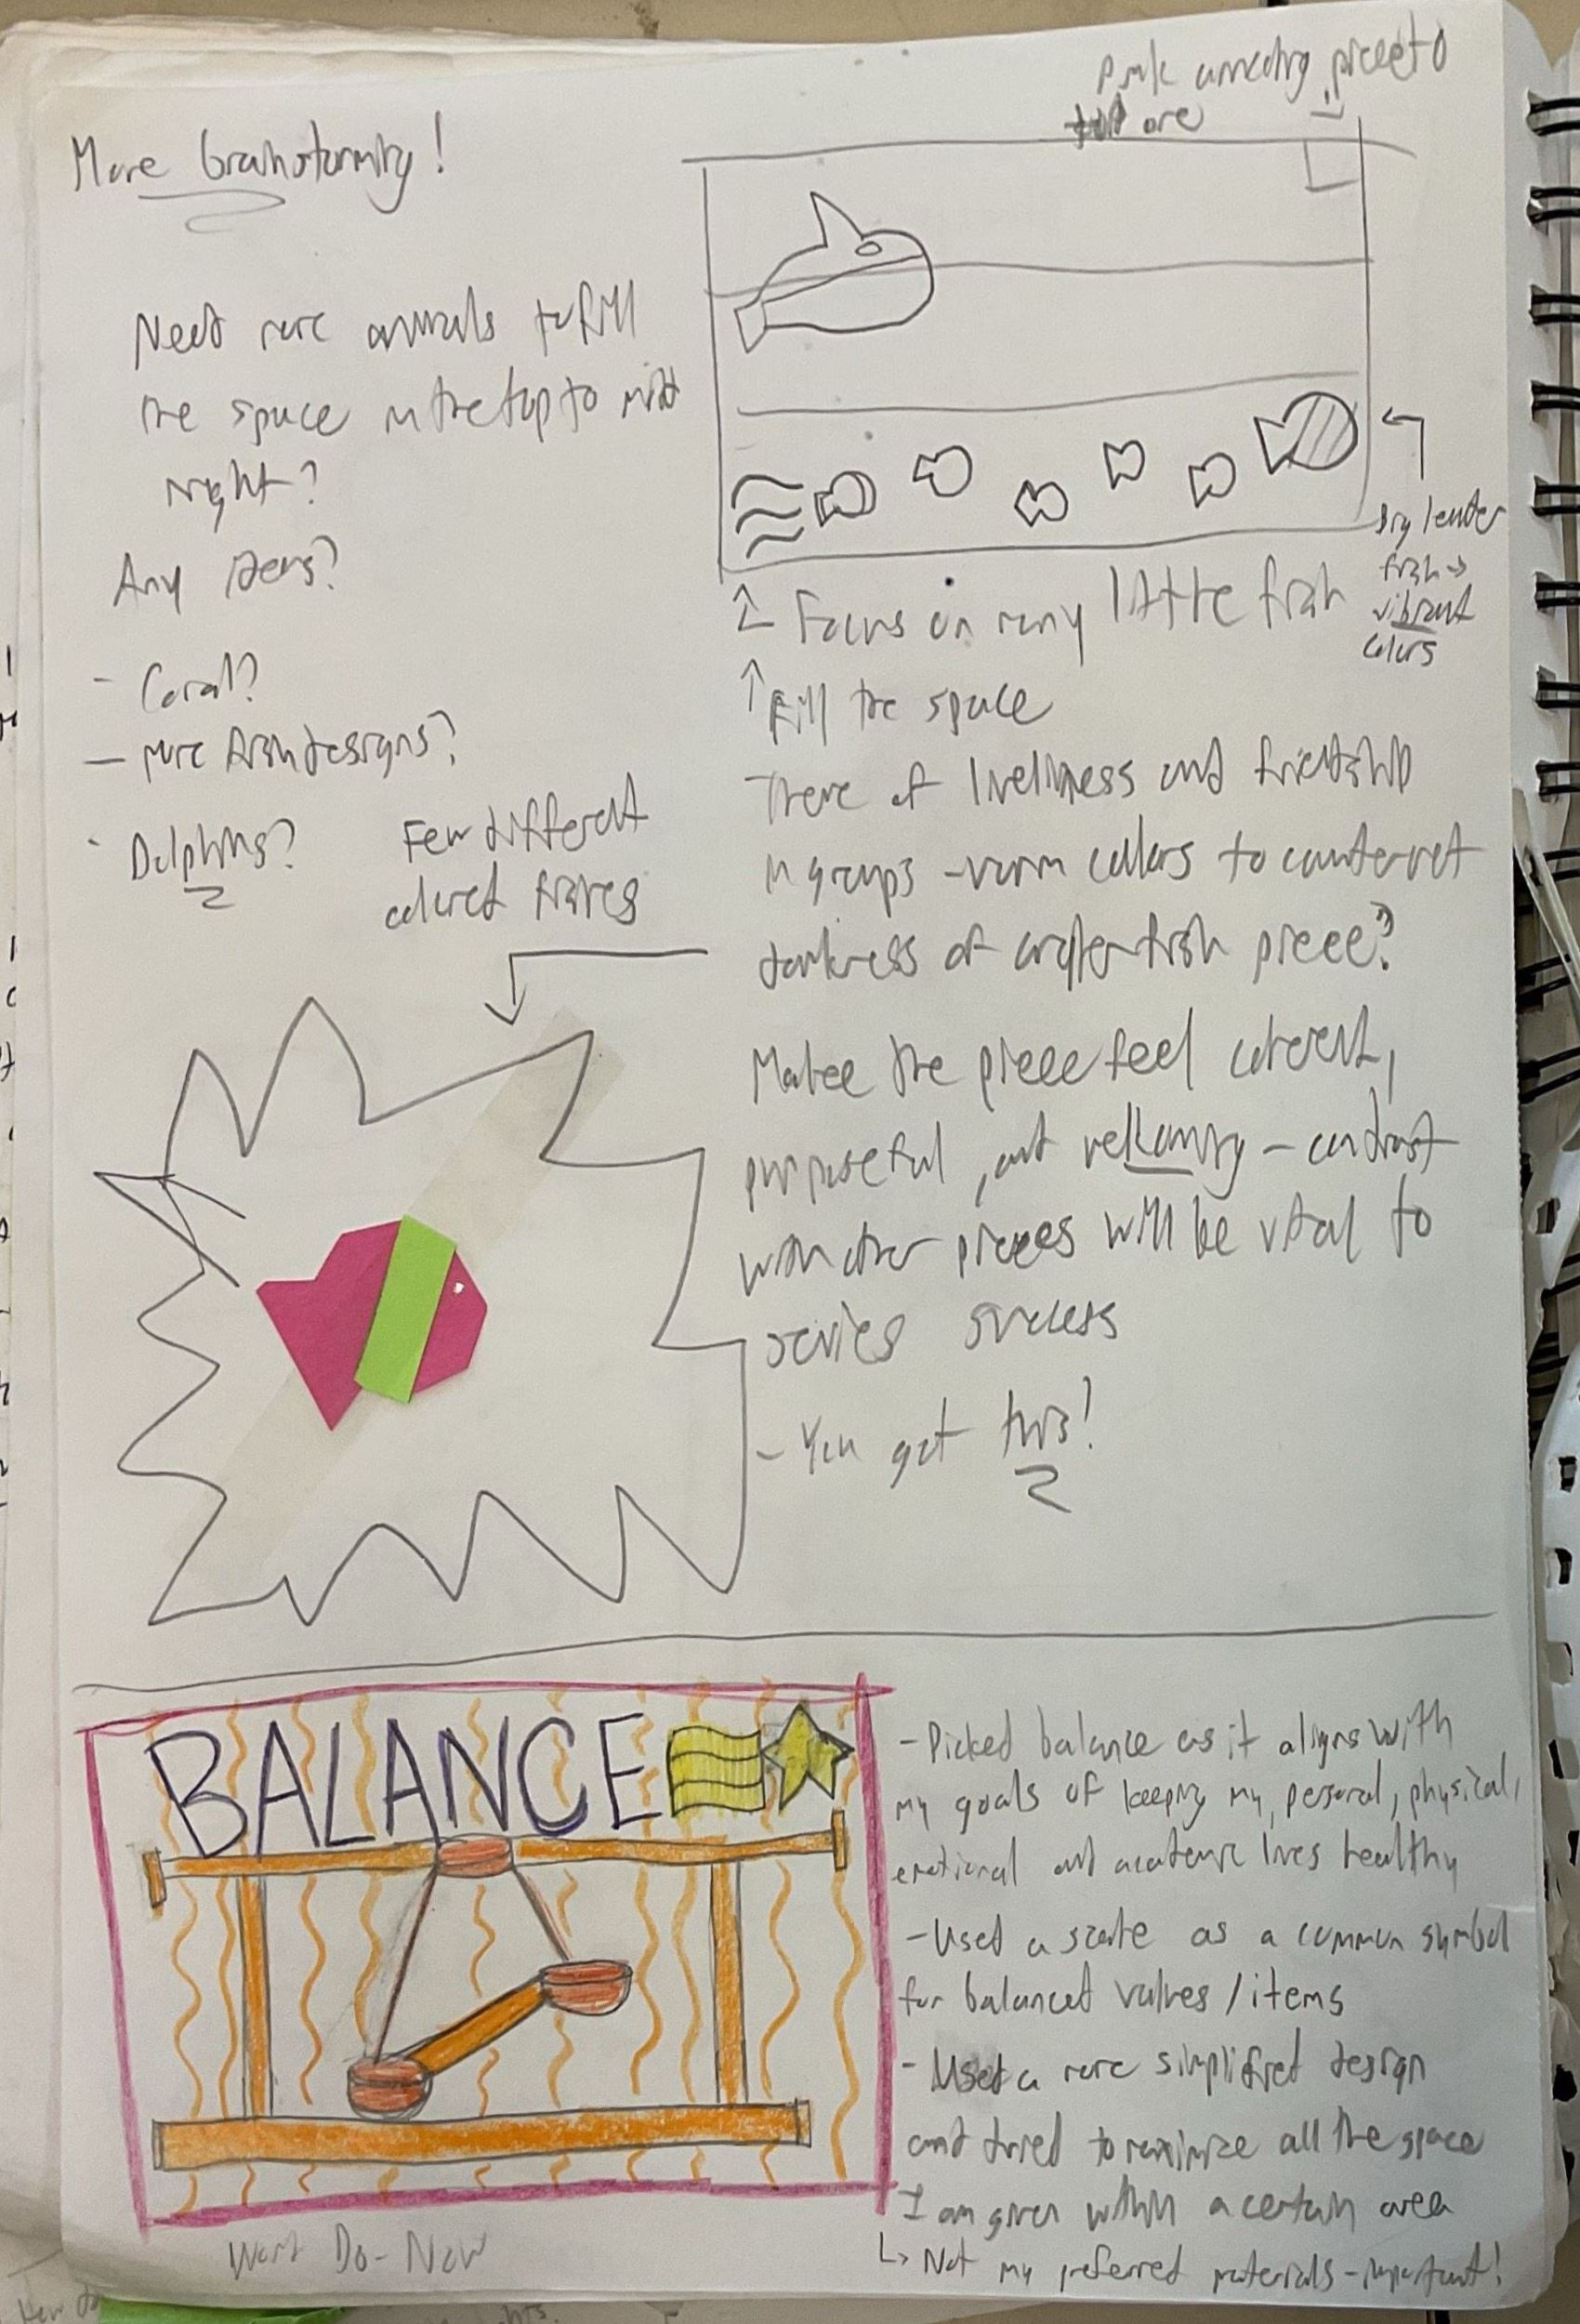 More brainstorming!
Need more animals to fill
the space in the top to mid
right?
Any ideas?
- Coral?
- More fish designs?
- Dolphins?
Few different
colored fishes
Peak connecting piece to
one
Big leader
fish →
vibrant
colors
Focus on many little fish
Fill the space
Theme of liveliness and friendship
in groups - warm colors to counteract
darkness of anglerfish piece?
Make the piece feel coherent,
purposeful, and welcoming - contrast
with other pieces will be vital to
series success
- You got this!
BALANCE
- Picked balance as it aligns with
my goals of keeping my, personal, physical,
emotional and academic lives healthy
- Used a scale as a common symbol
for balanced values / items
- Used a more simplified design
and tried to maximize all the space
I am given within a certain area
↳ Not my preferred materials - important!
Word Do-Now